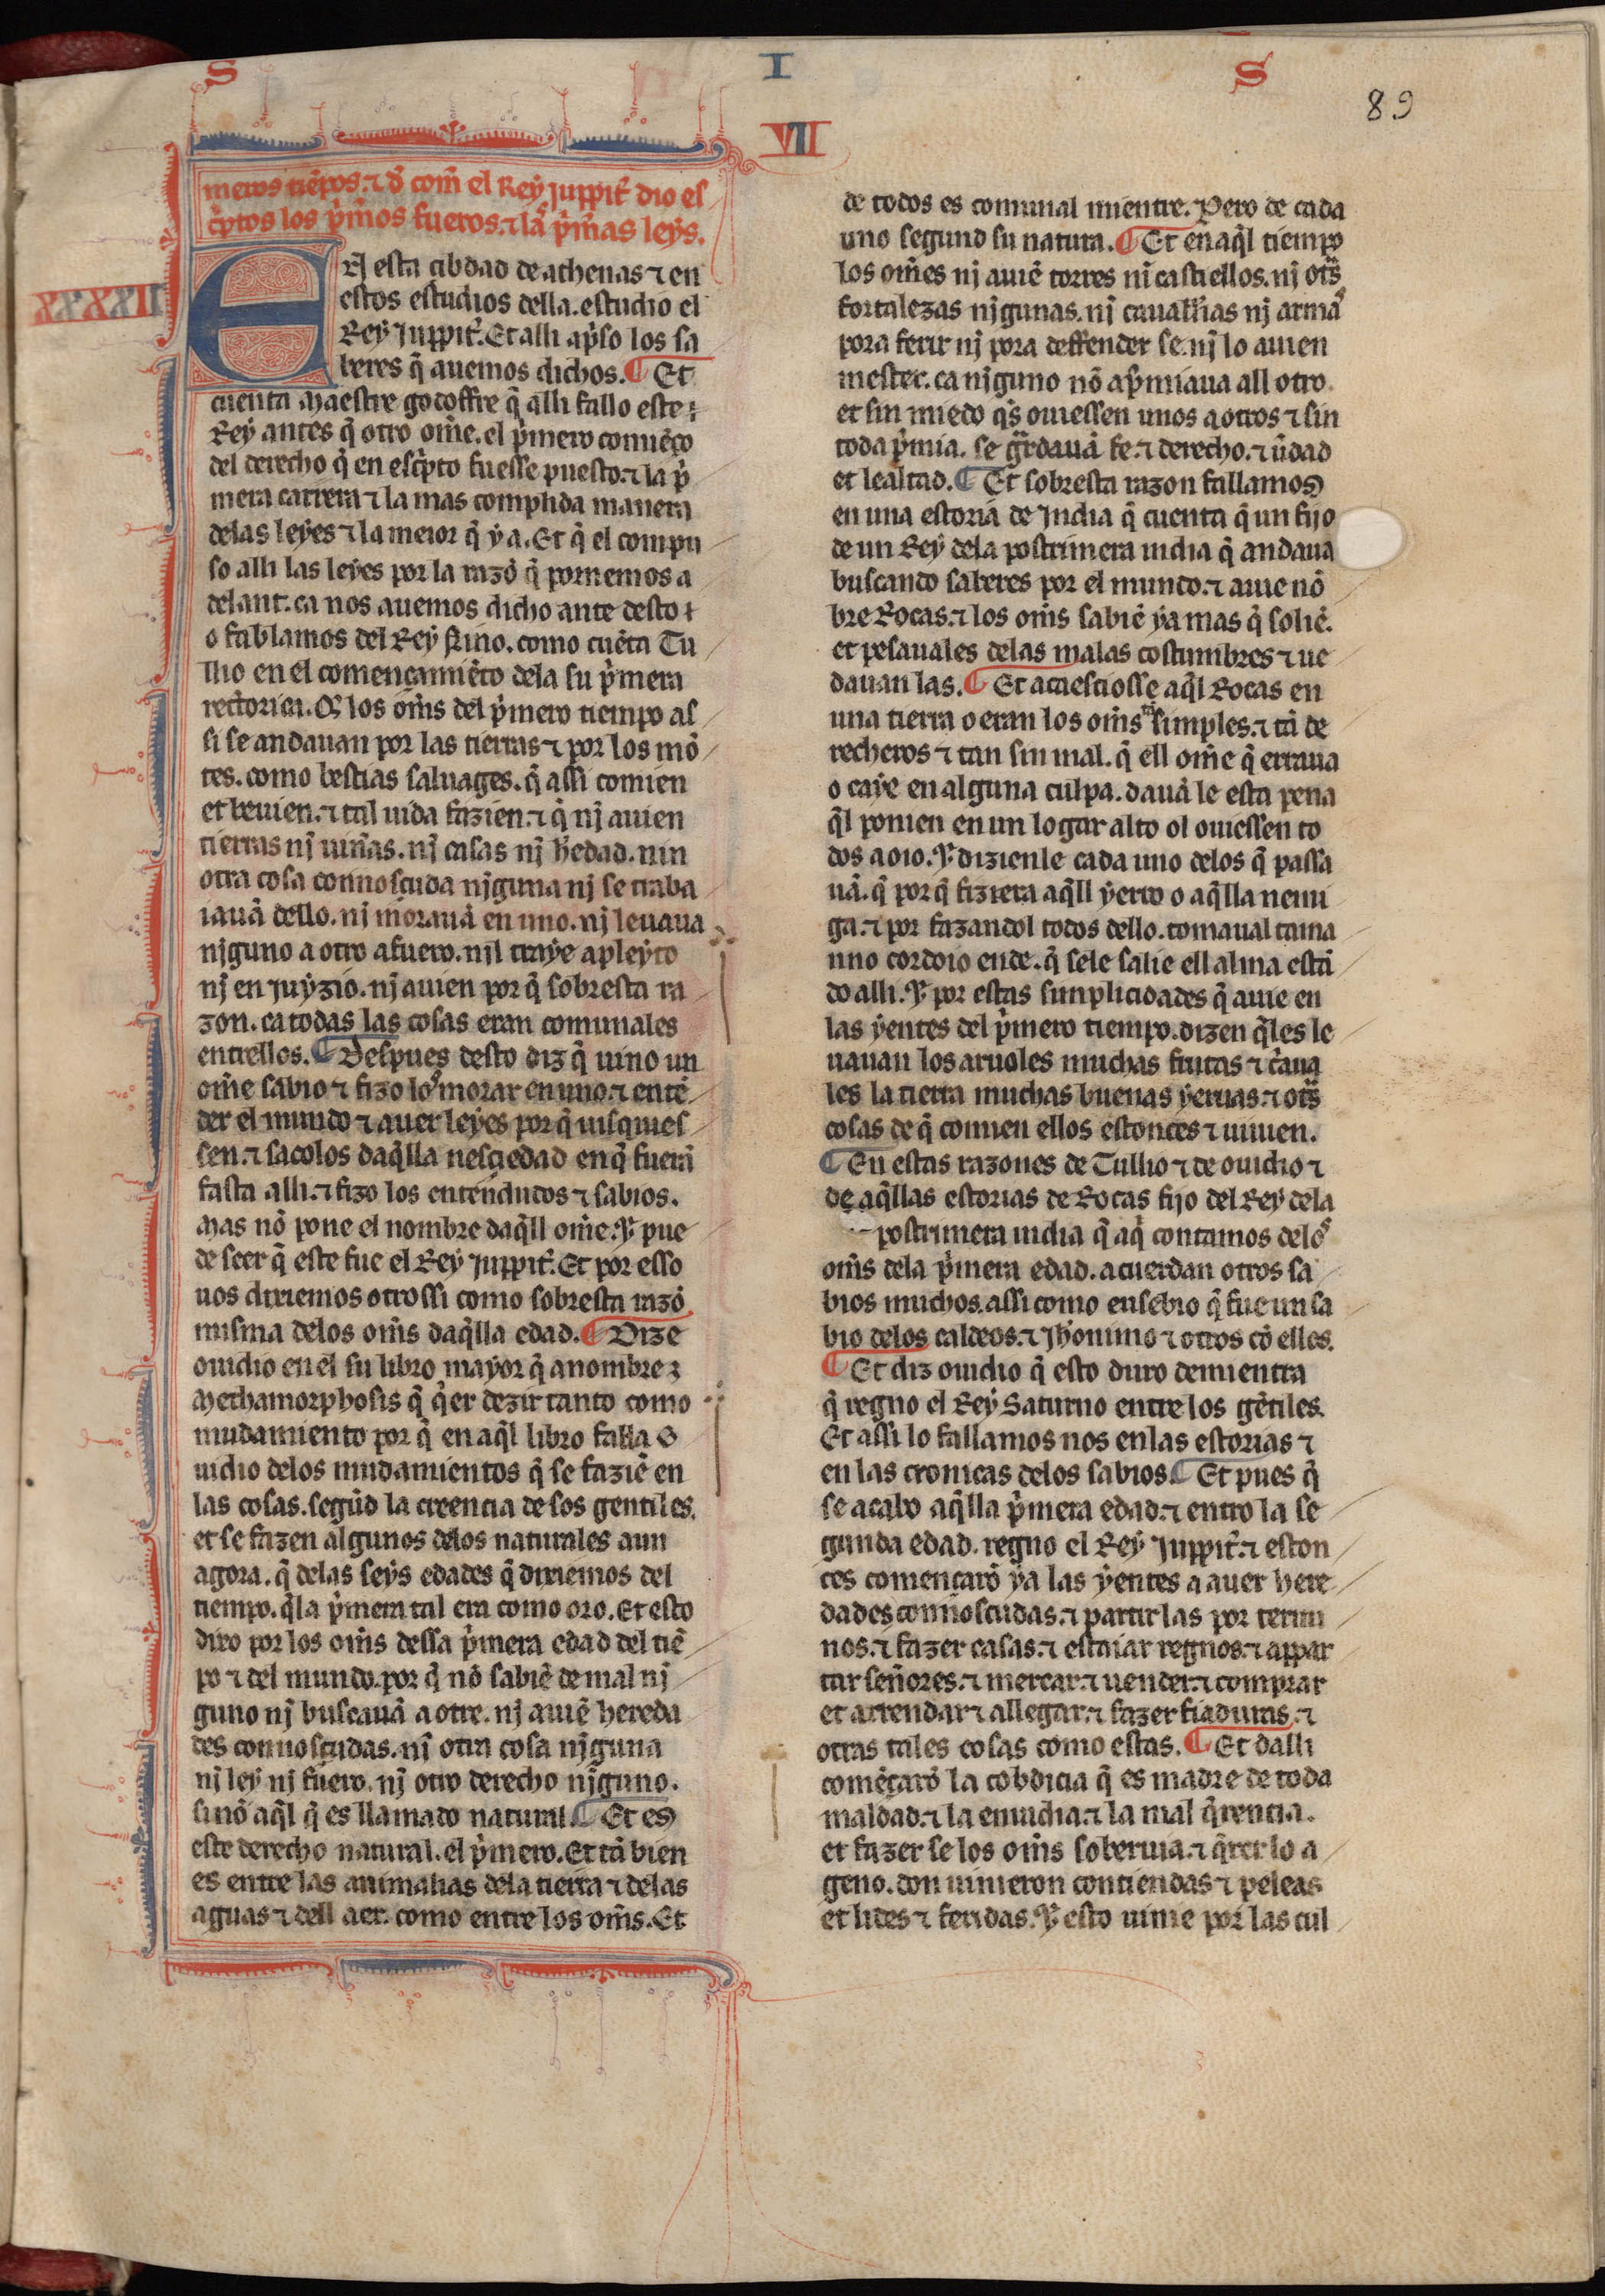 S I S
89
VII
meros tiẽpos. ⁊ d̃ com̃ el Rey juppit̃ dio es
c̃ptos los p̃meros fueros. ⁊ las p̃meras leys.
XXXXXII
EN esta cibdad de athenas ⁊ en
estos estudios della. estudio el
Rey Juppit̃. Et alli ap̃so los sa
beres q̃ auemos dichos. ¶ Et
cuenta Maestre godoffre q̃ alli fallo este
Rey antes q̃ otro om̃e. el p̃mero comẽço
del derecho q̃ en esc̃pto fuesse puesto. ⁊ la p̃
mera carrera ⁊ la mas complida manera
delas leyes ⁊ la meior q̃ y a. Et q̃ el compu
so alli las leyes por la razõ q̃ pornemos a
delant. ca nos auemos dicho ante desto
o fablamos del Rey Nino. como cuẽta Tu
llio en el comencamiẽto dela su p̃mera
rectorica. Q̃ los om̃s del p̃mero tiempo as
si se andauan por las tierras ⁊ por los mõ
tes. como bestias saluages. q̃ assi comien
et beuien. ⁊ tal uida fazien. ⁊ q̃ nj auien
tierras nj uin̄as. nj casas nj h̃edad. nin
otra cosa connosçuda njguna nj se traba
iauã dello. nj morauã en uno. nj leuaua
njguno a otro a fuero. nil traye a pleyto
nj en juyzio. nj auien por q̃ sobresta ra
zon. ca todas las cosas eran comunales
entrellos. ¶ Despues desto diz q̃ uino un
om̃e sabio ⁊ fizo los morar en uno. ⁊ entẽ
der el mundo ⁊ auer leyes por q̃ uisquies
sen. ⁊ sacolos daq̃lla nesciedad en q̃ fuerã
fasta alli. ⁊ fizo los entenducos ⁊ sabios.
Mas nõ pone el nombre daq̃ll om̃e. Y pue
de seer q̃ este fue el Rey Juppit̃. Et por esso
uos diremos otrossi como sobresta razõ
misma delos om̃s daq̃lla edad. ¶ Dize
ouidio en el su libro mayor q̃ a nombre
Methamorphosis q̃ q̃er dezir tanto como
mudamiento por q̃ en aq̃l libro falla O
uidio delos mudamientos q̃ se faziẽ en
las cosas. segũd la creencia de sos gentiles.
et se fazen algunos delos naturales aun
agora. q̃ delas seys edades q̃ diriemos del
tiempo. q̃ la p̃mera tal era como oro. Et esto
diro por los om̃s dessa p̃mera edad del tiẽ
po ⁊ del mundo. por q̃ nõ sabiẽ de mal nj
guno nj buscauã a otre. nj auiẽ hereda
des connoscudas. nj otra cosa njguna
nj ley nj fuero. nj otro derecho njguno.
sinõ aq̃l q̃ es llamado natural ¶ Et es
este derecho natural. el p̃mero. Et tã bien
es entre las animalias dela tierra ⁊ delas
aguas ⁊ dell aer. como entre los om̃s. Et
de todos es comunal mientre. Pero de cada
uno segund su natura. ¶ Et en aq̃l tiempo
los om̃es nj auiẽ torres nj castiellos. nj ot̃s
fortalezas njgunas. nj cauall̃ias nj armas
pora ferir nj pora deffender se. nj lo auien
mester. ca njguno nõ ap̃miaua all otro.
et sin miedo q̃s ouiessen unos a otros ⁊ sin
toda p̃mia. se g̃rdauã fe. ⁊ derecho. ⁊ ũdad
et lealtad. ¶ Et sobresta razon fallamos
en una estoria de Jndia q̃ cuenta q̃ un fijo
de un Rey dela postrimera india q̃ andaua
buscando saberes por el mundo. ⁊ auie nõ
bre Rocas. ⁊ los om̃s sabiẽ ya mas q̃ soliẽ.
et pesauales delas malas costumbres ⁊ ue
dauan las. ¶ Et acaesciosse aq̃l Rocas en
una tierra o eran los om̃s tã simples. ⁊ tã de
recheros ⁊ tan sin mal. q̃ ell om̃e q̃ erraua
o caye en alguna culpa. dauã le esta pena
q̃l ponien en un logar alto ol ouiessen to
dos a oio. Y dizienle cada uno delos q̃ passa
uã. q̃ por q̃ fiziera aq̃ll yerro o aq̃lla nemi
ga. ⁊ por fazandol todos dello. tomaual tama
nno cordoio ende. q̃ sele salie ell alma estã
do alli. Y por estas simplicidades q̃ auie en
las yentes del p̃mero tiempo. dizen q̃les le
uauan los aruoles muchas frutas ⁊ c̃aua
les la tierra muchas buenas yeruas. ⁊ ot̃s
cosas de q̃ comien ellos estonces ⁊ uiuien.
¶ En estas razones de Tullio ⁊ de ouidio ⁊
de aq̃llas estorias de Rocas fijo del Rey dela
postrimera india q̃ aq̃ contamos delos
om̃s dela p̃mera edad. acuerdan otros sa
bios muchos. assi como eusebio q̃ fue un sa
bio delos caldeos. ⁊ Jh̃onimo ⁊ otros cõ elles.
¶ Et diz ouidio q̃ esto duro demientra
q̃ regno el Rey Saturno entre los gẽtiles.
Et assi lo fallamos nos en las estorias ⁊
en las cronicas delos sabios. ¶ Et pues q̃
se acabo aq̃lla p̃mera edad. ⁊ entro la se
gunda edad. regno el Rey Juppit̃. ⁊ eston
ces comencarõ ya las yentes a auer here
dades connoscudas. ⁊ partir las por termi
nos. ⁊ fazer casas. ⁊ estaiar regnos. ⁊ appar
tar señores. ⁊ mercar. ⁊ uender. ⁊ comprar
et arrendar ⁊ allegar. ⁊ fazer fiaduras. ⁊
otras tales cosas como estas. ¶ Et dalli
comẽçarõ la cobdicia q̃ es madre de toda
maldad. ⁊ la enuidia. ⁊ la mal q̃rencia.
et fazer se los om̃s soberuia. ⁊ q̃rer lo a
geno. don uinieron contiendas ⁊ peleas
et lides ⁊ feridas. Y esto uinie por las cul